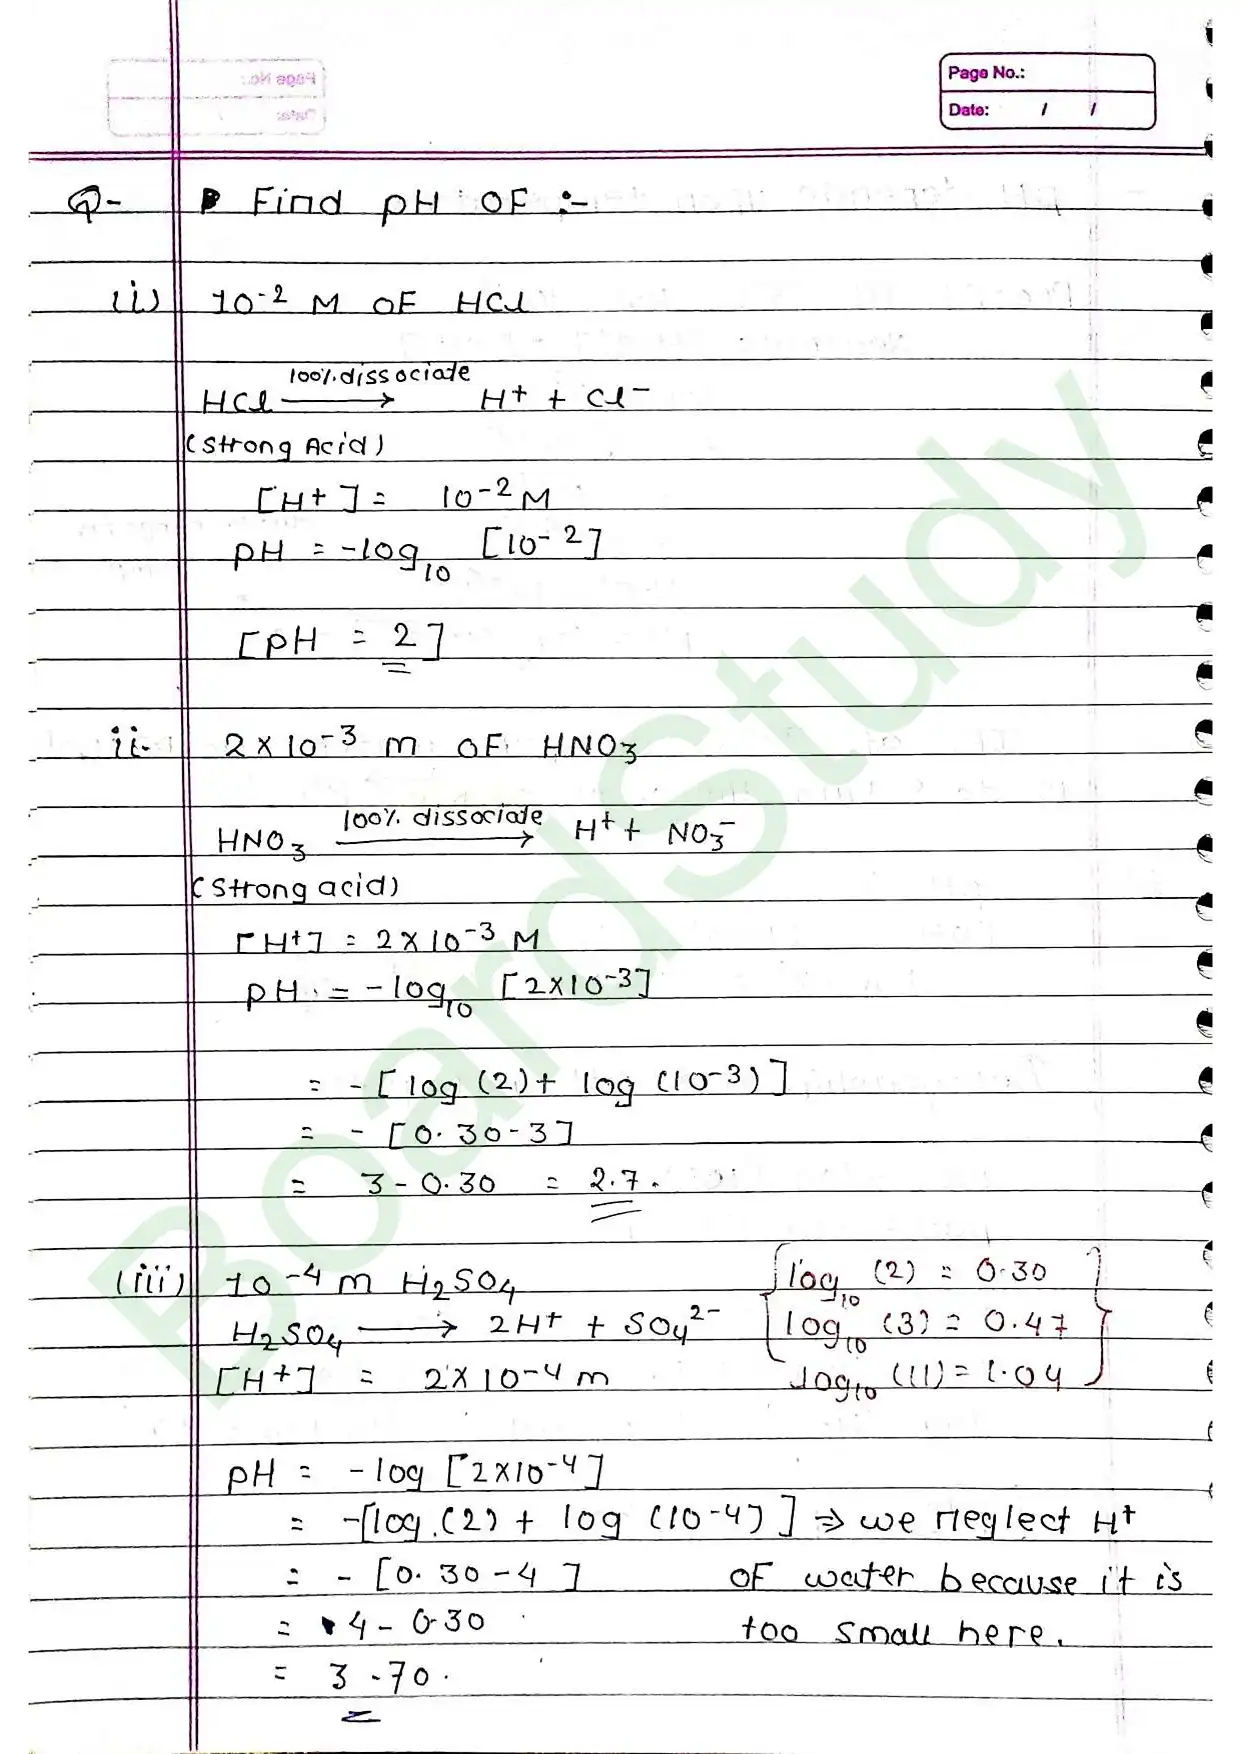 Page No.:
Date: / /
Q- Find pH OF :-
(i) 10⁻² M OF HCl
HCl 100% dissociate → H⁺ + Cl⁻
(Strong Acid)
[H⁺] = 10⁻² M
pH = -log₁₀ [10⁻²]
[pH = 2]
ii- 2×10⁻³ m OF HNO₃
HNO₃ 100% dissociate → H⁺ + NO₃⁻
(Strong acid)
[H⁺] = 2×10⁻³ M
pH = -log₁₀ [2×10⁻³]
= -[log (2) + log (10⁻³)]
= - [0.30-3]
= 3-0.30 = 2.7.
(iii) 10⁻⁴ m H₂SO₄
H₂SO₄ → 2H⁺ + SO₄²⁻
[H⁺] = 2×10⁻⁴ m
log₁₀ (2) = 0.30
log₁₀ (3) = 0.47
log₁₀ (11) = 1.04
pH = -log [2×10⁻⁴]
= -[log (2) + log (10⁻⁴)] ⇒ we neglect H⁺
= - [0.30-4] OF water because it is
= 4-0.30 too small here.
= 3.70.
BoardStudy